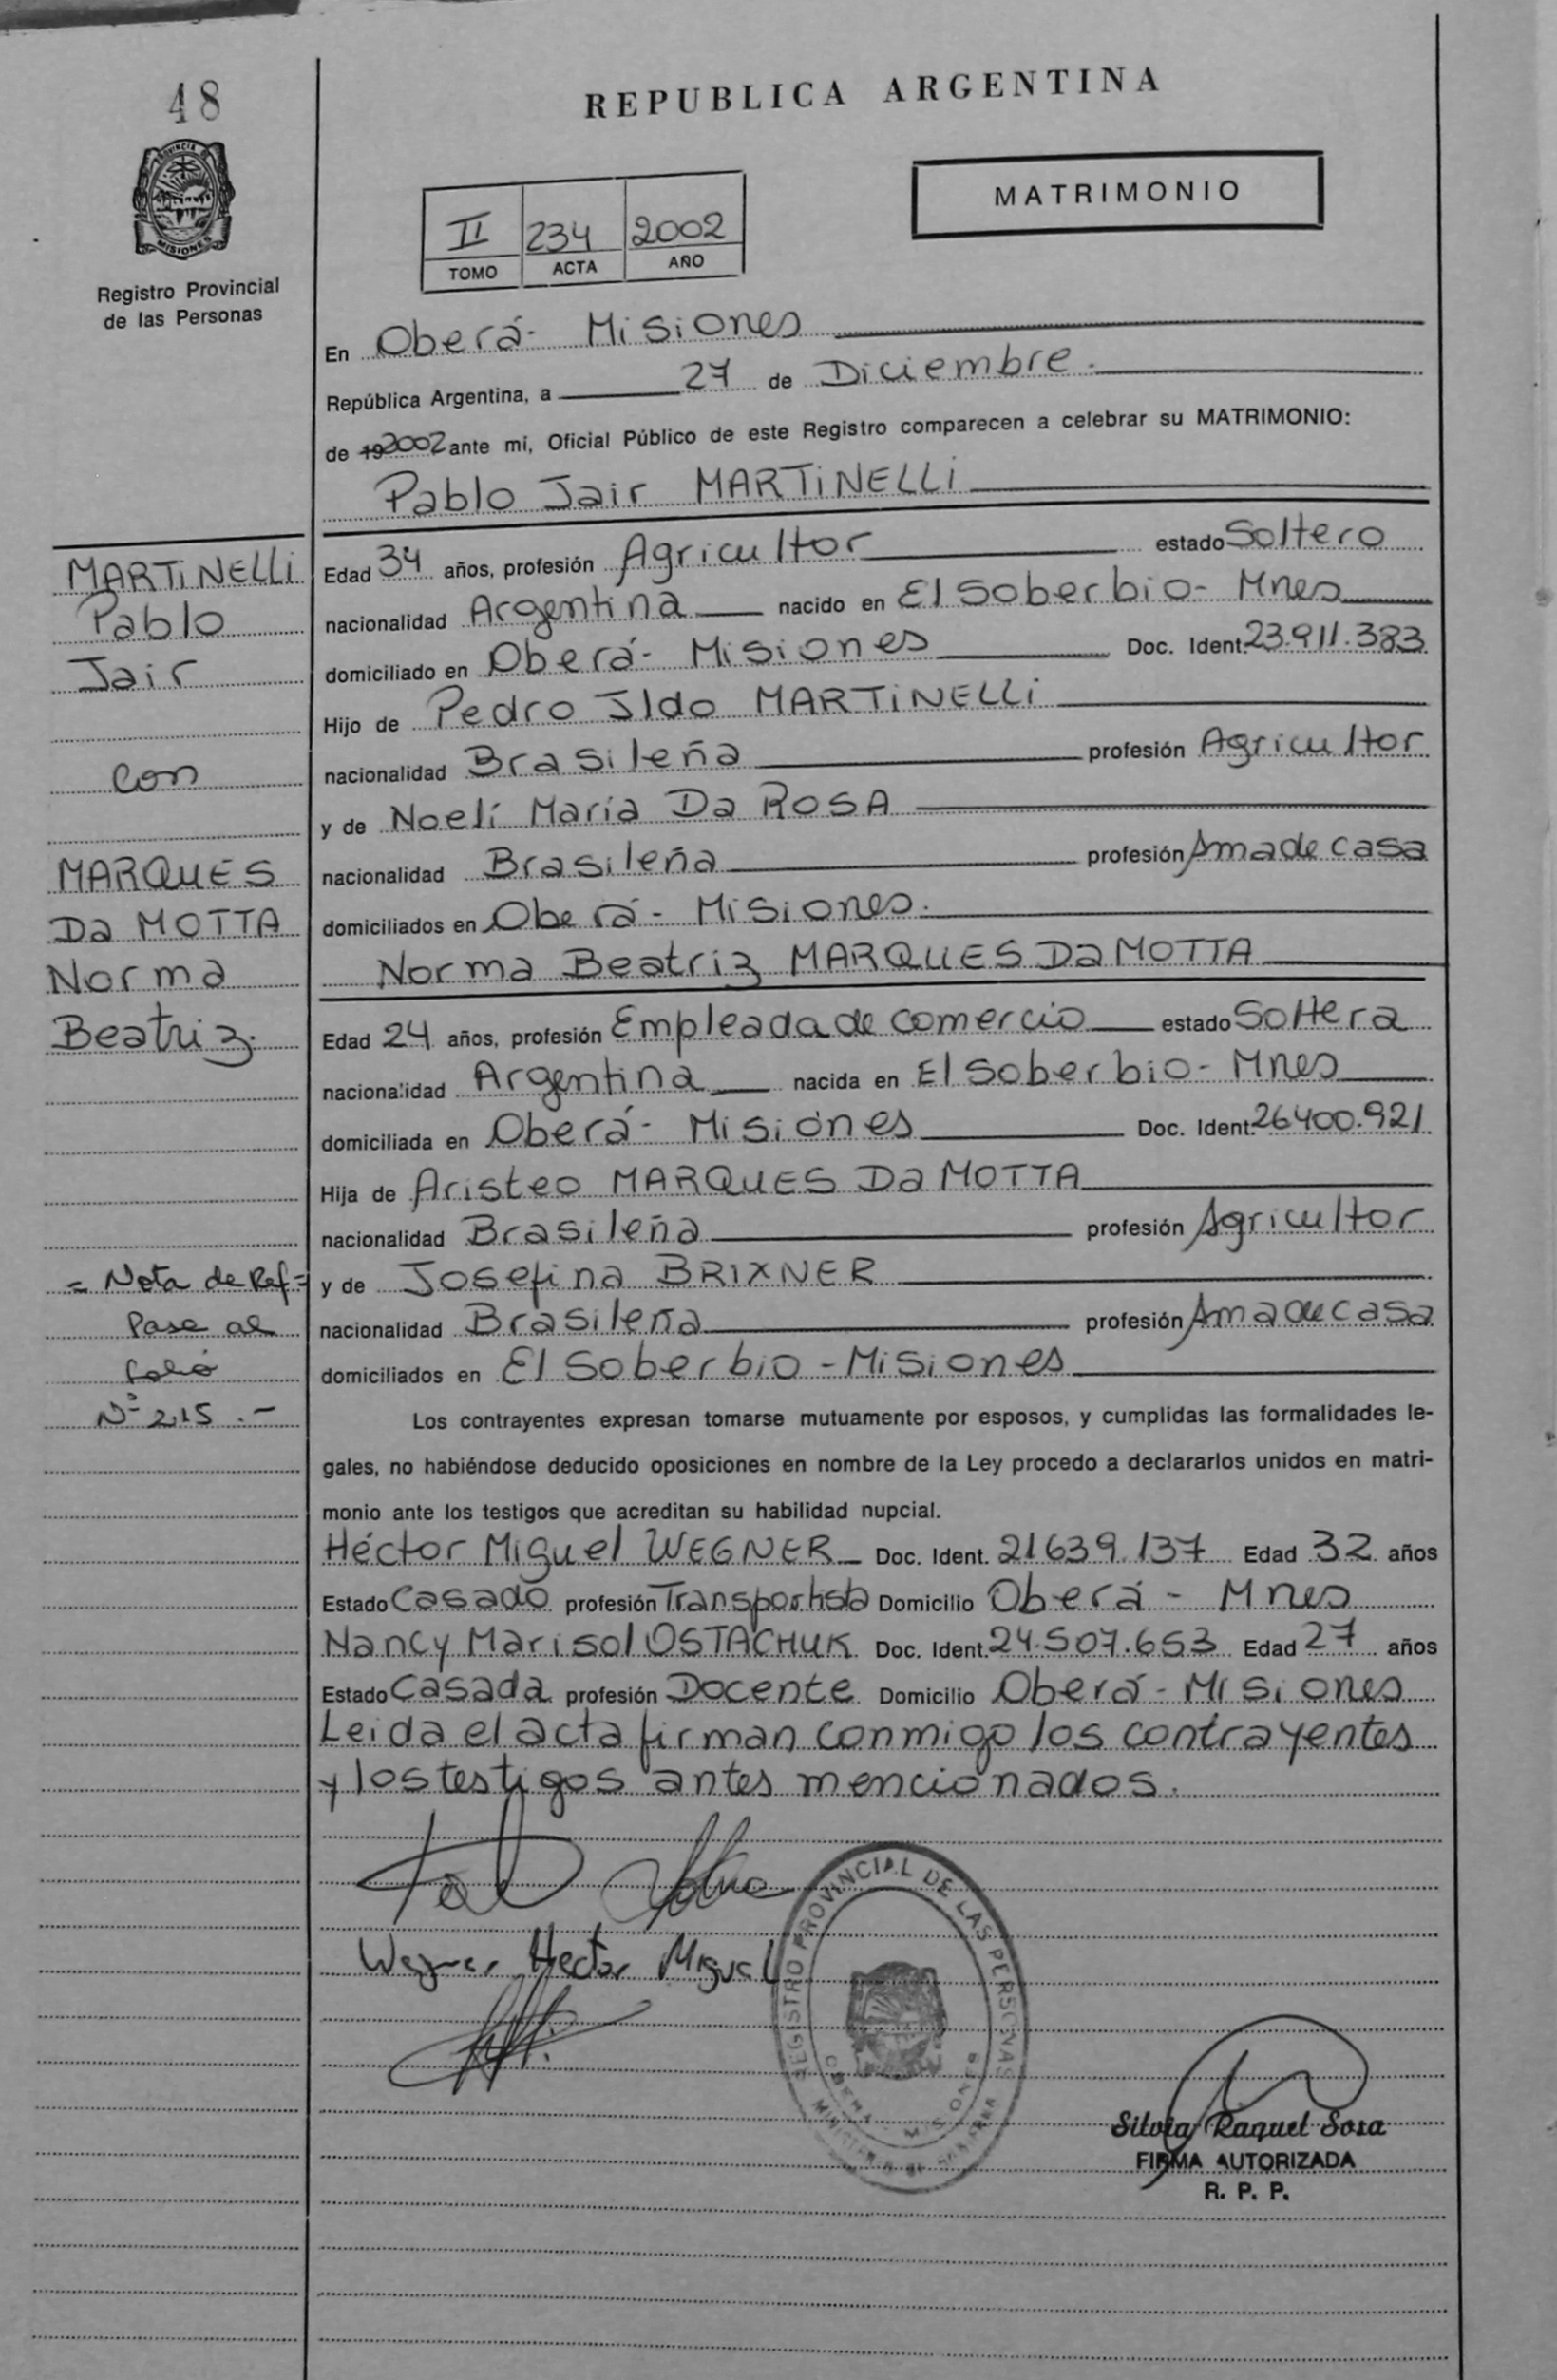 48
REPUBLICA ARGENTINA
MATRIMONIO
II 234 2002
TOMO ACTA AÑO
PROVINCIA DE MISIONES
Registro Provincial
de las Personas
En Oberá- Misiones
República Argentina, a 27 de Diciembre.
de 192002 ante mí, Oficial Público de este Registro comparecen a celebrar su MATRIMONIO:
Pablo Jair MARTINELLI
Edad 34 años, profesión Agricultor estado Soltero
nacionalidad Argentina nacido en El Soberbio- Mnes
domiciliado en Oberá- Misiones Doc. Ident. 23.911.383
Hijo de Pedro Ildo MARTINELLI
nacionalidad Brasileña profesión Agricultor
y de Noelí María Da ROSA
nacionalidad Brasileña profesión Ama de casa
domiciliados en Oberá- Misiones.
Norma Beatriz MARQUES Da MOTTA
Edad 24 años, profesión Empleada de comercio estado Soltera
nacionalidad Argentina nacida en El Soberbio- Mnes
domiciliada en Oberá- Misiones Doc. Ident. 26400.921
Hija de Aristeo MARQUES Da MOTTA
nacionalidad Brasileña profesión Agricultor
y de Josefina BRIXNER
nacionalidad Brasileña profesión Ama de casa
domiciliados en El Soberbio - Misiones
Los contrayentes expresan tomarse mutuamente por esposos, y cumplidas las formalidades le-
gales, no habiéndose deducido oposiciones en nombre de la Ley procedo a declararlos unidos en matri-
monio ante los testigos que acreditan su habilidad nupcial.
Héctor Miguel WEGNER Doc. Ident. 21639.137 Edad 32 años
Estado Casado profesión Transportista Domicilio Oberá - Mnes
Nancy Marisol OSTACHUK Doc. Ident. 24.507.653 Edad 27 años
Estado Casada profesión Docente Domicilio Oberá - Misiones
Leida el acta firman conmigo los contrayentes
y los testigos antes mencionados.
MARTINELLI
Pablo
Jair
con
MARQUES
Da MOTTA
Norma
Beatriz.
= Nota de Ref =
Pase al
folio
Nº 215 .-
Wegner Hector Miguel
REGISTRO PROVINCIAL DE LAS PERSONAS
OBERA MISIONES
Silvia Raquel Sosa
FIRMA AUTORIZADA
R. P. P.